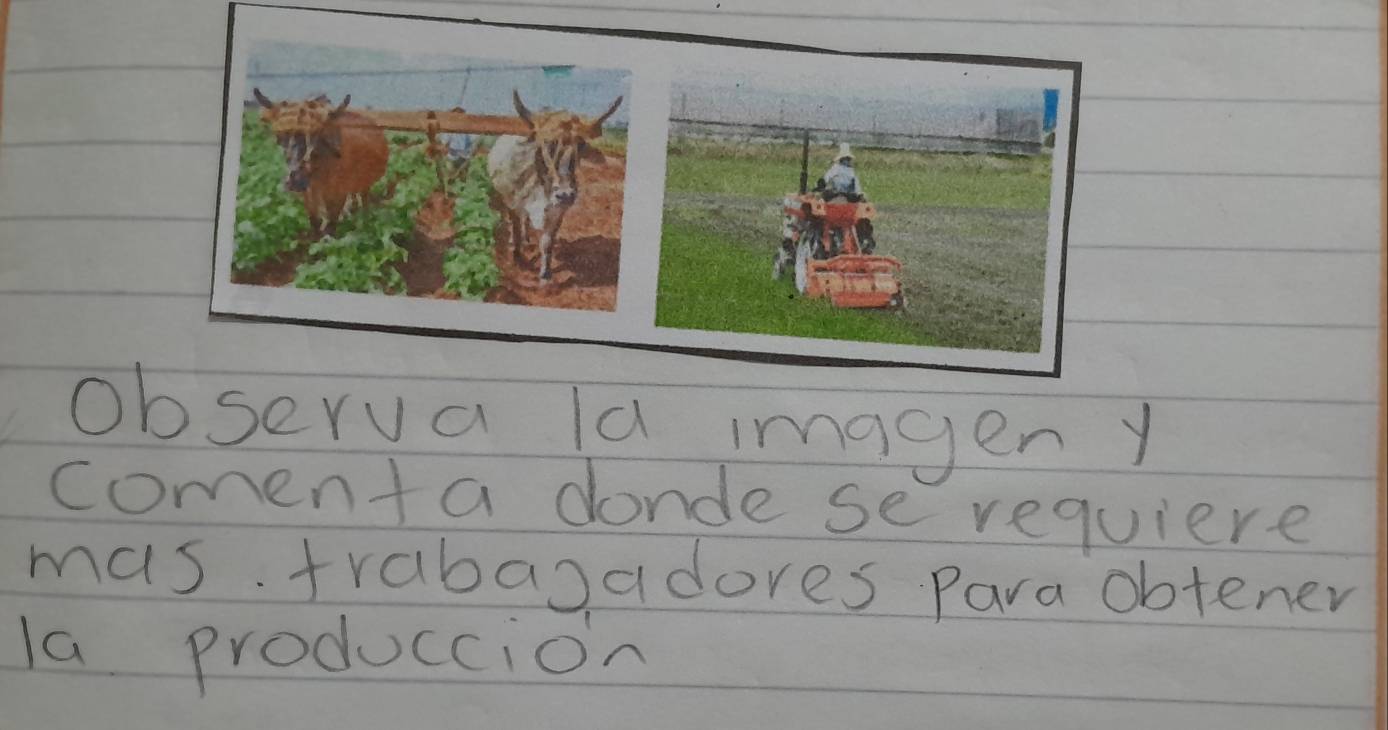 Observa la imagen y
comenta donde se requiere
mas. trabajadores para obtener
la producción